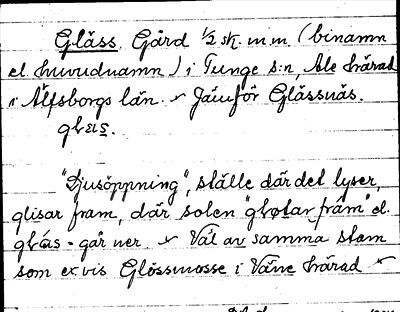 Gläss. Gård 1/2 sk. m.m. (binamn
el. huvudnamn) i Tunge s:n, Ale härad
i Älfsborgs län. Jämför Glässnäs.
"Ljusöppning", ställe där det lyser,
glisar fram, där solen "glotar fram" el.
går ner. Väl av samma stam
som ex vis Glössmosse i Väne härad